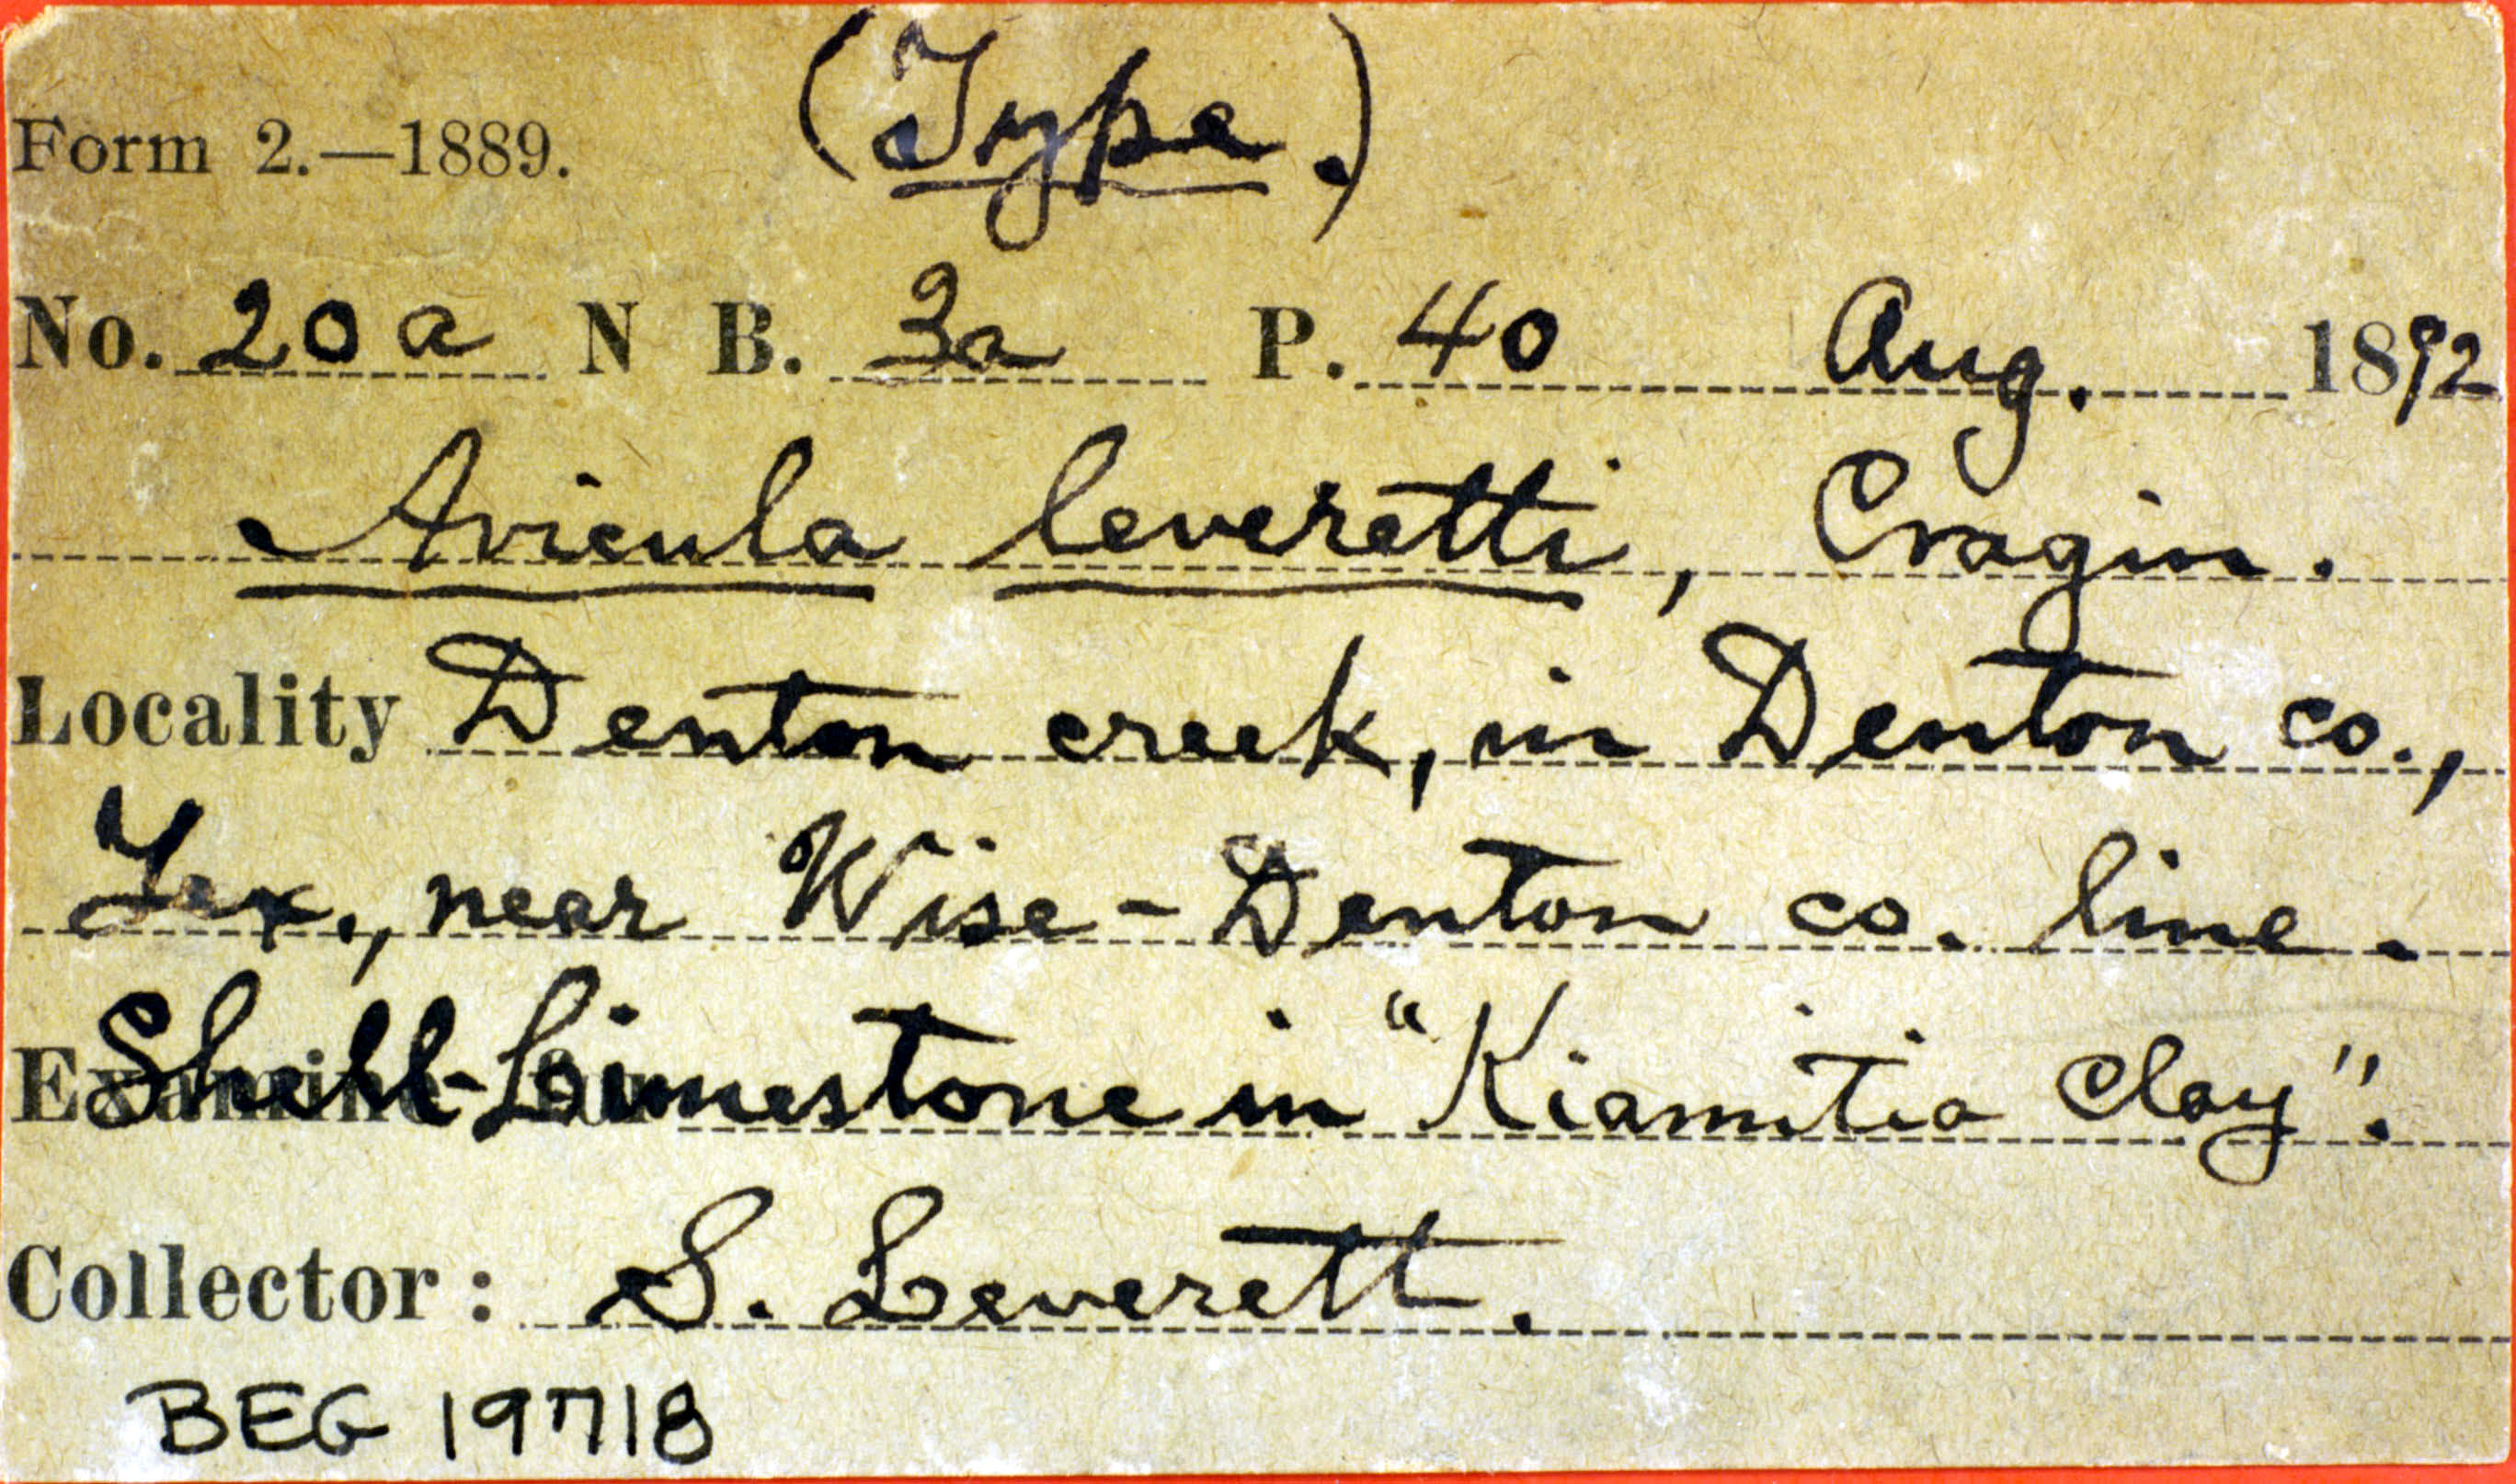 (Type.)
Form 2.—1889.
No. 20a N B. 3a P. 40 Aug. 1892
Avicula leveretti, Cragin.
Locality Denton creek, in Denton co.,
Tex., near Wise-Denton co. line.
Examine for
Shell-Limestone in "Kiamitia Clay".
Collector: S. Leverett.
BEG 19718